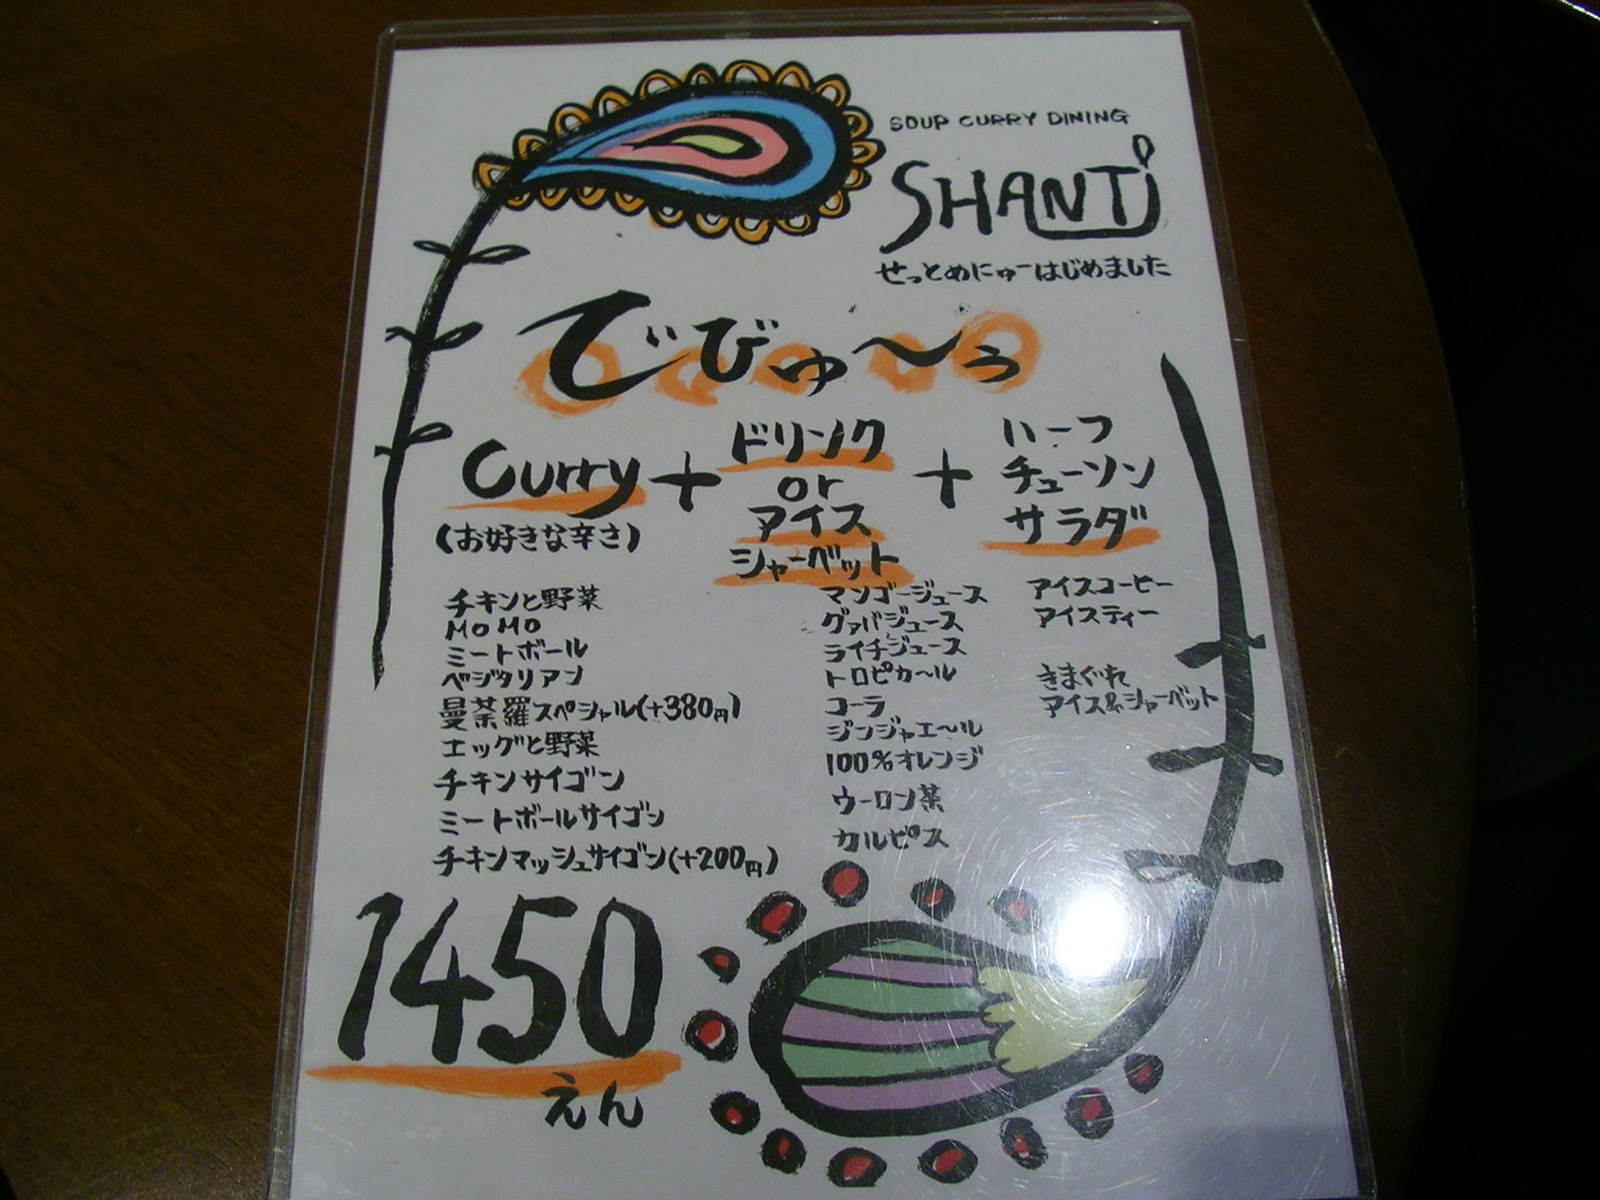 SOUP CURRY DINING
SHANTi
せっとめにゅーはじめました
でびゅ〜う
Curry + ドリンク or アイス シャーベット + ハーフ チューソン サラダ
(お好きな辛さ)
チキンと野菜
MOMO
ミートボール
ベジタリアン
曼荼羅スペシャル(+380円)
エッグと野菜
チキンサイゴン
ミートボールサイゴン
チキンマッシュサイゴン(+200円)
マンゴージュース
グァバジュース
ライチジュース
トロピカ〜ル
コーラ
ジンジャエ〜ル
100%オレンジ
ウーロン茶
カルピス
アイスコーヒー
アイスティー
きまぐれ
アイス&シャーベット
1450
えん